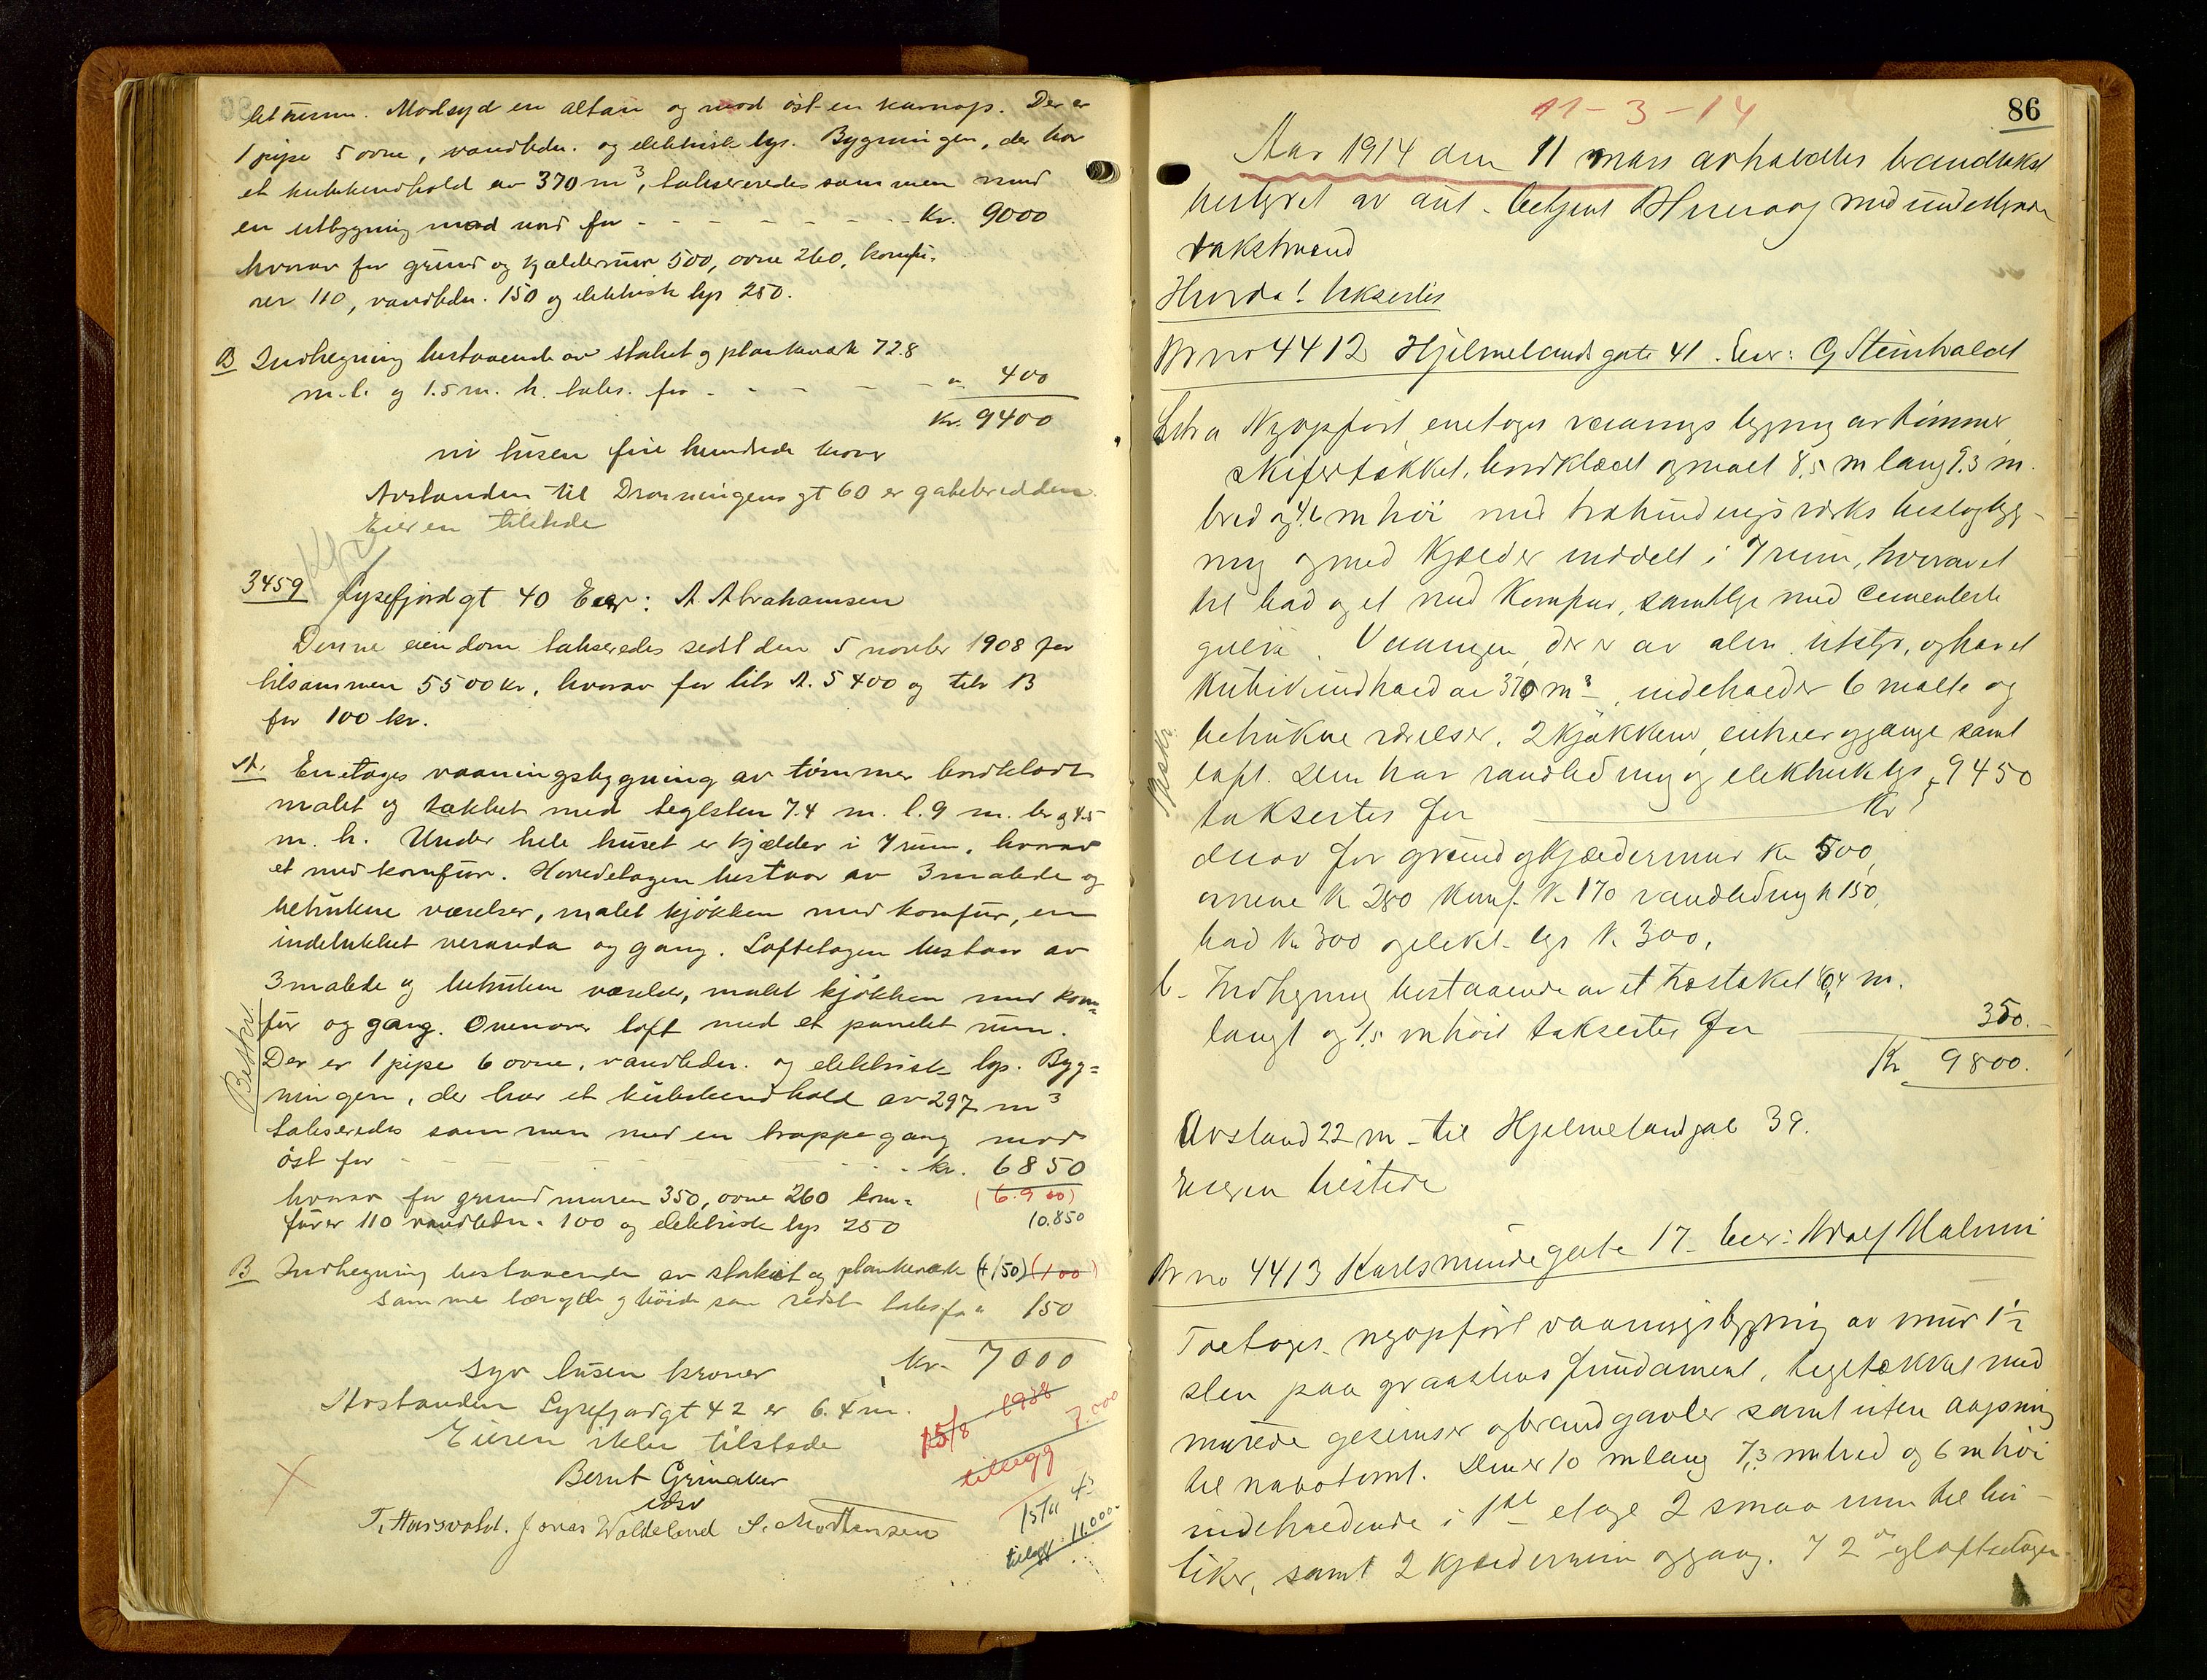 let rum. Modsyd en altan og mod øst en karnap. Der er
1 pipe 5 ovne, vandledn. og elektrisk lys. Bygningen, der har
et kubikindhold av 370 m³, takseredes sammen med
en utbygning mod nord for - - - - - - - Kr. 9000
hvorav for grund og kjældermur 500, ovne 260, komfu-
rer 110, vandledn. 150 og elektrisk lys 250.
B Indhegning bestaaende av stakit og plankeværk 72.8
m. l. og 1.5 m. h. taks. for - - - - - " 400
Kr. 9400
ni tusen fire hundrede kroner
Avstanden til Dronningens gt 60 er gatebredden.
Eieren tilstede
3459 Lysefjord gt 40 Eier: A Abrahamsen
Denne eiendom takseredes sidst den 5 novbr 1908 for
tilsammen 5500 kr, hvorav for litr A. 5400 og litr B
for 100 kr.
A. Enetages vaaningsbygning av tømmer bordklædt
malet og tækket med teglsten 7.4 m. l. 9 m. br og 4.5
m. h. Under hele huset er kjælder i 7 rum, hvorav
et med komfur. Hovedetagen bestaar av 3 malede og
betrukne værelser, malet kjøkken med komfur, en
indelukket veranda og gang. Loftetagen bestaar av
3 malede og betrukne værelser, malet kjøkken med kom=
fur og gang. Ovenover loft med et panelet rum.
Der er 1 pipe 6 ovne, vandledn. og elektrisk lys. Byg=
ningen, der har et kubikindhold av 297 m³
takseredes sammen med en trappegang mod
øst for - - - - - - - kr. 6850
hvorav for grundmuren 350, ovne 260 kom= (6.900)
furer 110 vandledn. 100 og elektrisk lys 250 10.850
B Indhegning bestaaende av stakit og plankeværk (+150) (100)
samme længde og høide som sidst taks for " 150
Kr. 7000
syv tusen kroner
Avstanden Lysefjordgt 42 er 6.4 m.
Eieren ikke tilstede
15/8 1938 7.000
tillegg
Bernt Grimaker
T. Hausvald. Jonas Waldeland S. Morthensen
15/11 43
tillegg 11.000-
Beskr
11-3-14
86
Aar 1914 den 11 mars avholdtes brandtakst
bestyret av aut. betjent B Huevaag med undertegnede
takstmænd
Hvorda! taksertes
Br no 4412 Hjelmelands gate 41. Eier: G Steinhaldt
Litr a Nyopført enetages vaanings bygning av tømmer,
skifertækket, bordklædt og malt 8,5 m lang 9.3 m.
bred og 4,6 m høi med trabindingsværks beslagbyg-
ning og med kjælder inddelt i 7 rum, hvorav et
til bad og et med komfur, samtlige med cementerte
gulv. Vaaningen, der er av alm. utstyr, og har et
kubikindhold av 370 m³, indeholder 6 malte og
betrukne værelser, 2 kjøkkener, entreer og gange samt
loft. Den har vandledning og elektrisk lys
taksertes for Kr 9450
derav for grund og kjældermur Kr 500,
ovnene Kr 280 Komf. Kr 170 vandledning Kr 150,
bad Kr 300 og elekt. lys Kr 300,
b. Indhegning bestaaende av et træstaket 80,4 m.
langt og 1,5 m høit taksertes for 350.-
Kr 9800.
Avstand 22 m - til Hjelmelandgat 39.
Eieren tilstede
Br no 4413 Karlsmindegate 17. Eier: Adolf Malmin
Toetages nyopført vaaningsbygning av mur 1½
sten paa graastens fundament, tegltækket med
murede gesimser og brandgavler samt uten aapning
til nabotomt. Den er 10 m lang 7,3 m bred og 6 m høi
indeholdende i 1ste etage 2 smaa rum til bu-
tiker, samt 2 kjælderrum og gang. I 2den og loftsetagen